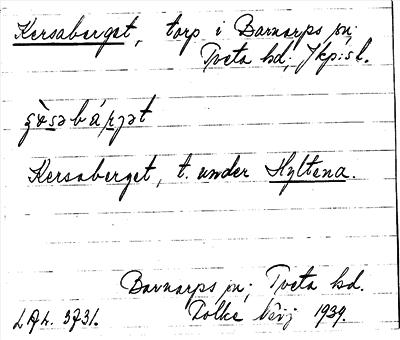 Kersaberget, torp i Barnarps sn;
Tveta hd; Jkp:sl.
Kersaberget, t. under Hyltena.
Barnarps sn; Tveta hd.
Folke 1939.
LAL. 3731.